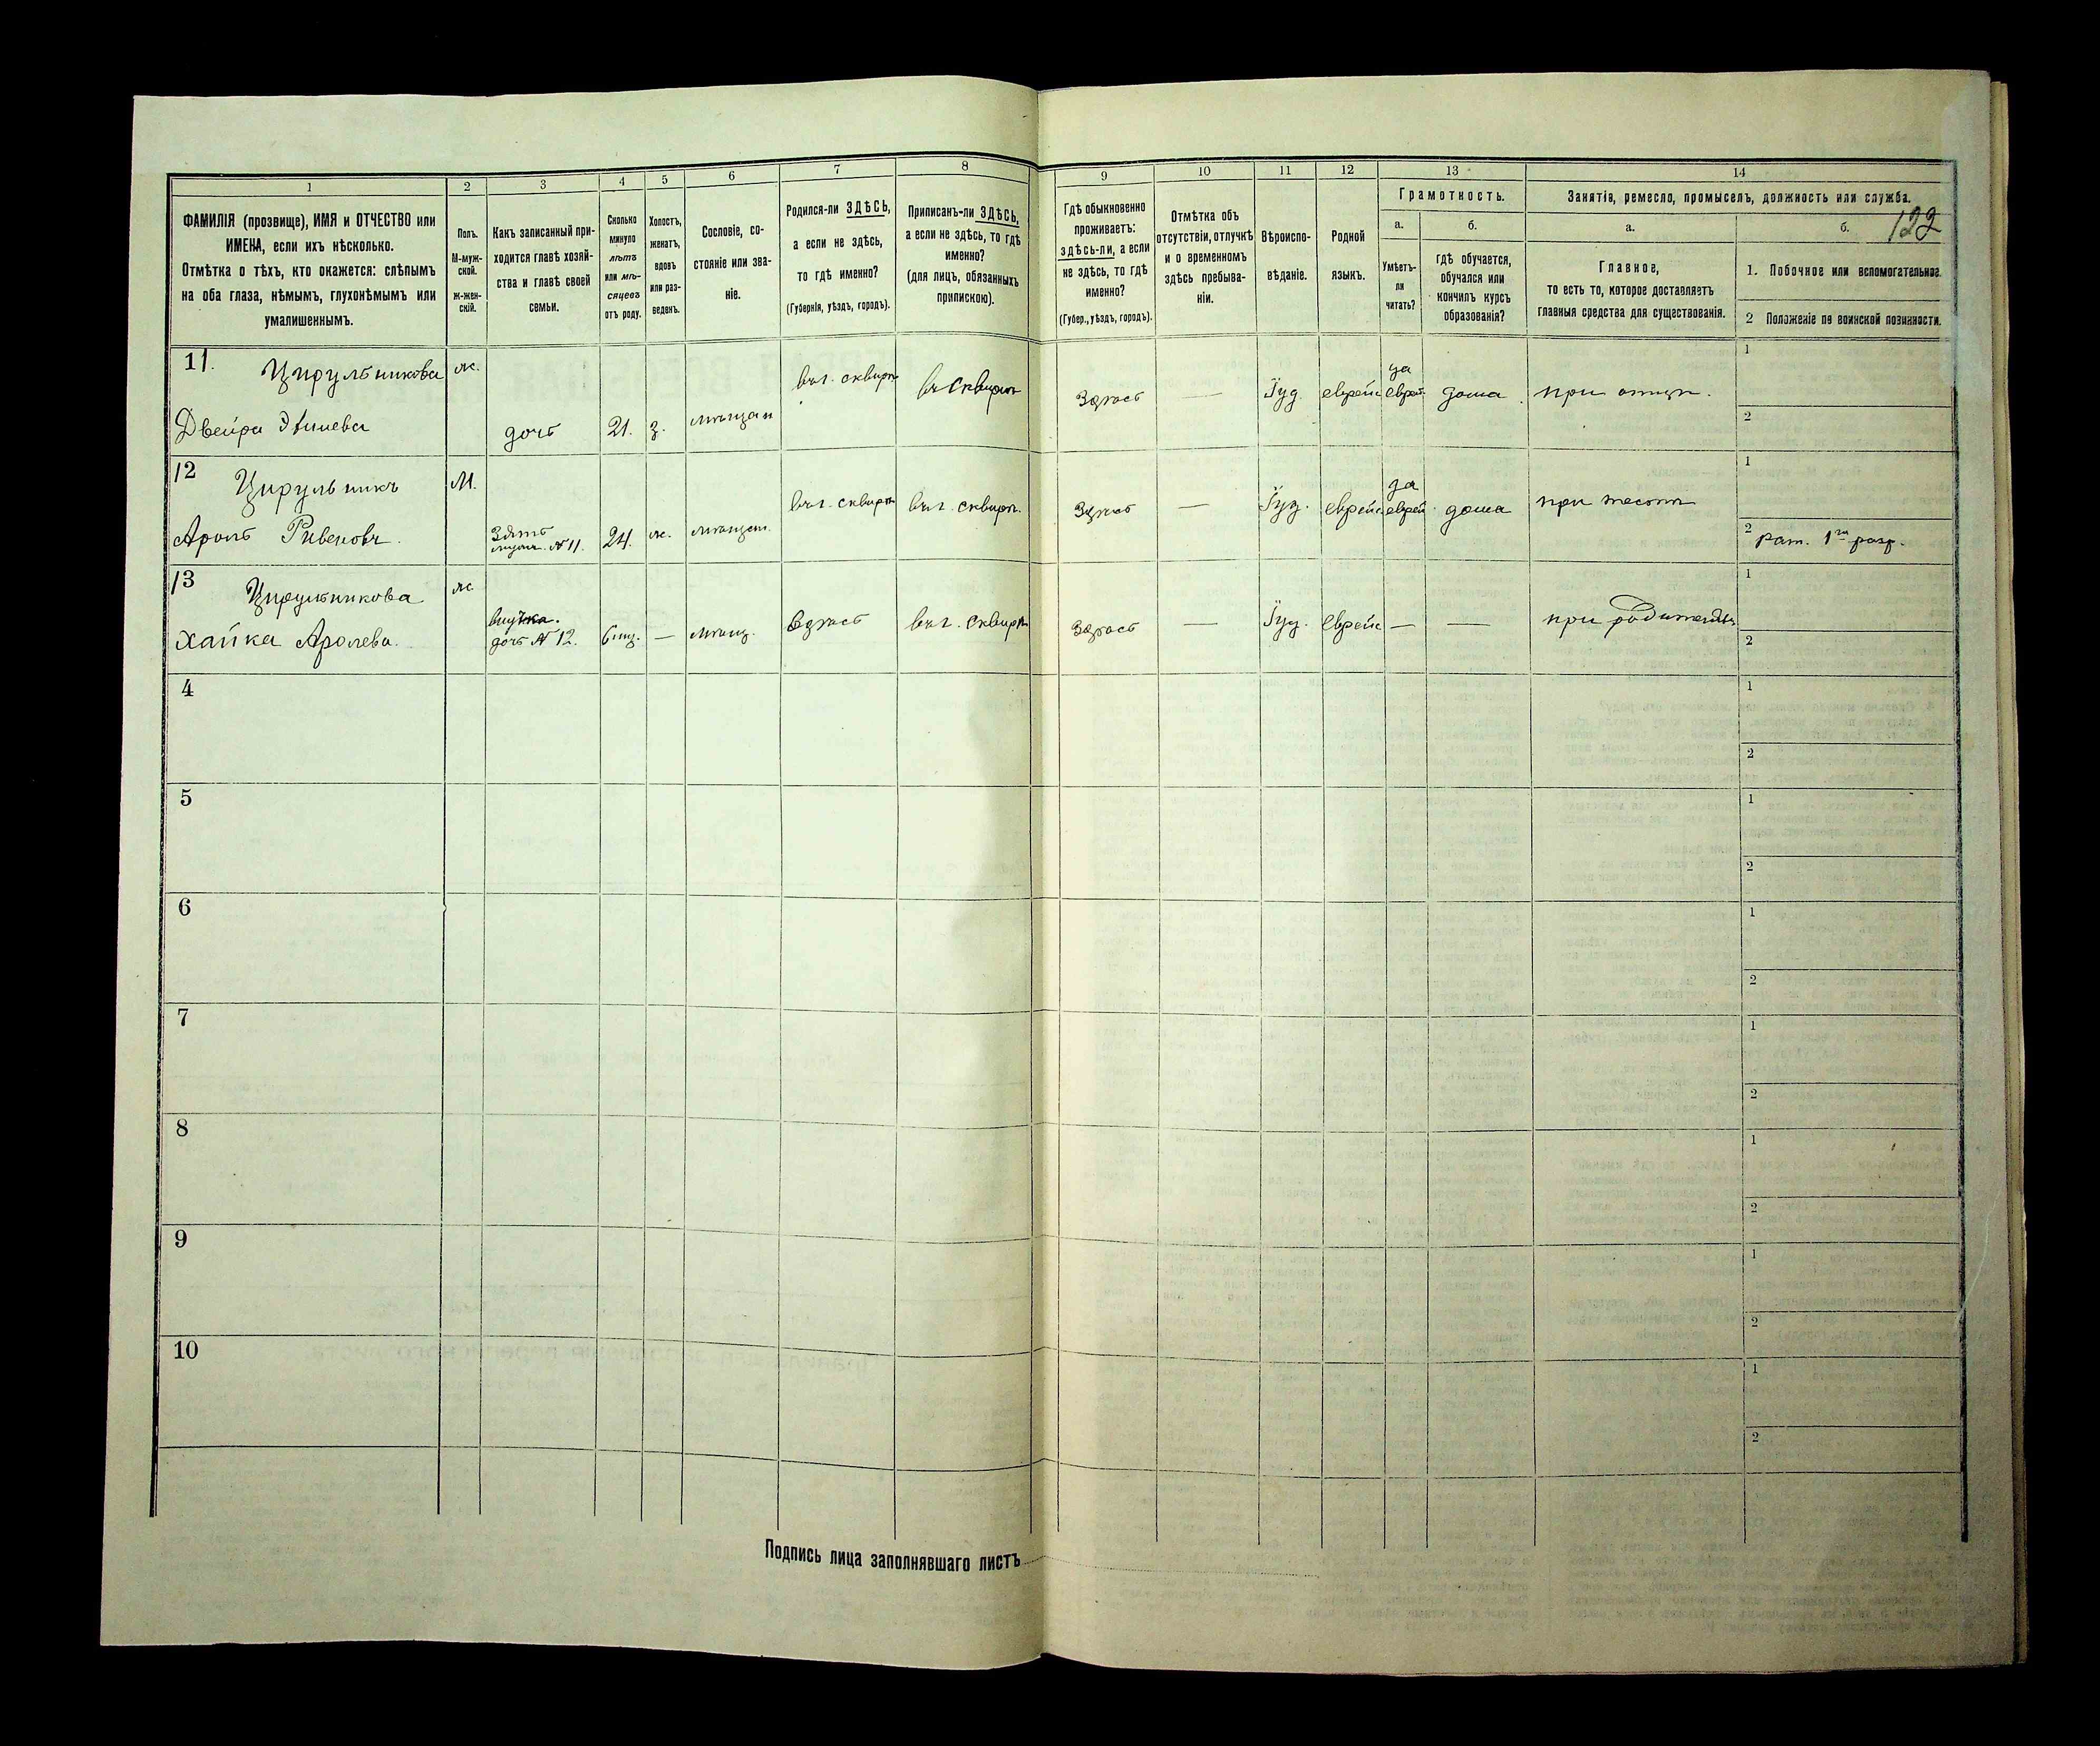 1
2
3
4
5
6
7
8
9
10
11
12
13
14
ФАМИЛІЯ (прозвище), ИМЯ и ОТЧЕСТВО или
ИМЕНА, если ихъ нѣсколько.
Отмѣтка о тѣхъ, кто окажется: слѣпымъ
на оба глаза, нѣмымъ, глухонѣмымъ или
умалишеннымъ.
Полъ.
М-муж-
ской.
ж-жен-
скій.
Какъ записанный при-
ходится главѣ хозяй-
ства и главѣ своей
семьи.
Сколько
минуло
лѣтъ
или мѣ-
сяцевъ
отъ роду.
Холостъ,
женатъ,
вдовъ
или раз-
веденъ.
Сословіе, со-
стояніе или зва-
ніе.
Родился-ли ЗДѢСЬ,
а если не здѣсь,
то гдѣ именно?
(Губернія, уѣздъ, городъ).
Приписанъ-ли ЗДѢСЬ,
а если не здѣсь, то гдѣ
именно?
(для лицъ, обязанныхъ
припискою).
Гдѣ обыкновенно
проживаетъ:
здѣсь-ли, а если
не здѣсь, то гдѣ
именно?
(Губер., уѣздъ, городъ).
Отмѣтка объ
отсутствіи, отлучкѣ
и о временномъ
здѣсь пребыва-
ніи.
Вѣроиспо-
вѣданіе.
Родной
языкъ.
Грамотность.
а.
Умѣетъ-
ли
читать?
б.
гдѣ обучается,
обучался или
кончилъ курсъ
образованія?
Занятія, ремесло, промыселъ, должность или служба.
122
а.
Главное,
то есть то, которое доставляетъ
главныя средства для существованія.
б.
1. Побочное или вспомогательное.
2 Положеніе по воинской повинности.
11. Цирульникова
Двейра
ж.
дочь
21.
з.
мѣщан
въ г. сквирѣ
въ сквирѣ
Здѣсь
—
Іуд.
еврейс
да
еврей
дома
при отцѣ.
1
2
12 Цирульникъ
Аронъ Рувеновъ.
М.
Зять
№ 11.
24.
ж.
мѣщан.
въ г. сквирѣ
въ г. сквирѣ.
Здѣсь
—
Іуд.
еврейс
да
еврей
дома
при тестѣ
1
2 Рат. 1го разр.
13 Цирульникова
Хайка Аронева.
ж
внучка.
дочь № 12.
6 мц.
—
мѣщ.
Здѣсь
въ г. сквирѣ
Здѣсь
—
Іуд.
еврейс
—
—
при родителяхъ
1
2
4
1
2
5
1
2
6
1
2
7
1
2
8
1
2
9
1
2
10
1
2
Подпись лица заполнявшаго листъ